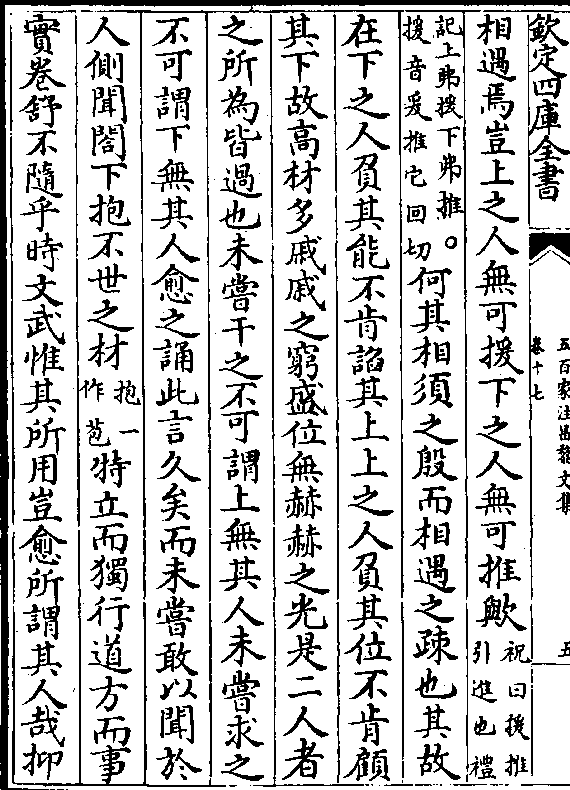 欽定四庫全書
五百家注昌黎文集
卷十七
五
相遇焉豈上之人無可援下之人無可推歟祝曰援推引進也禮
記上弗援下弗推。援音爰推它回切何其相須之殷而相遇之疎也其故
在下之人負其能不肯諂其上上之人負其位不肯顧
其下故高材多戚戚之窮盛位無赫赫之光是二人者
之所為皆過也未嘗干之不可謂上無其人未嘗求之
不可謂下無其人愈之誦此言久矣而未嘗敢以聞於
人側聞閤下抱不世之材抱一作苞特立而獨行道方而事
實卷舒不隨乎時文武惟其所用豈愈所謂其人哉抑